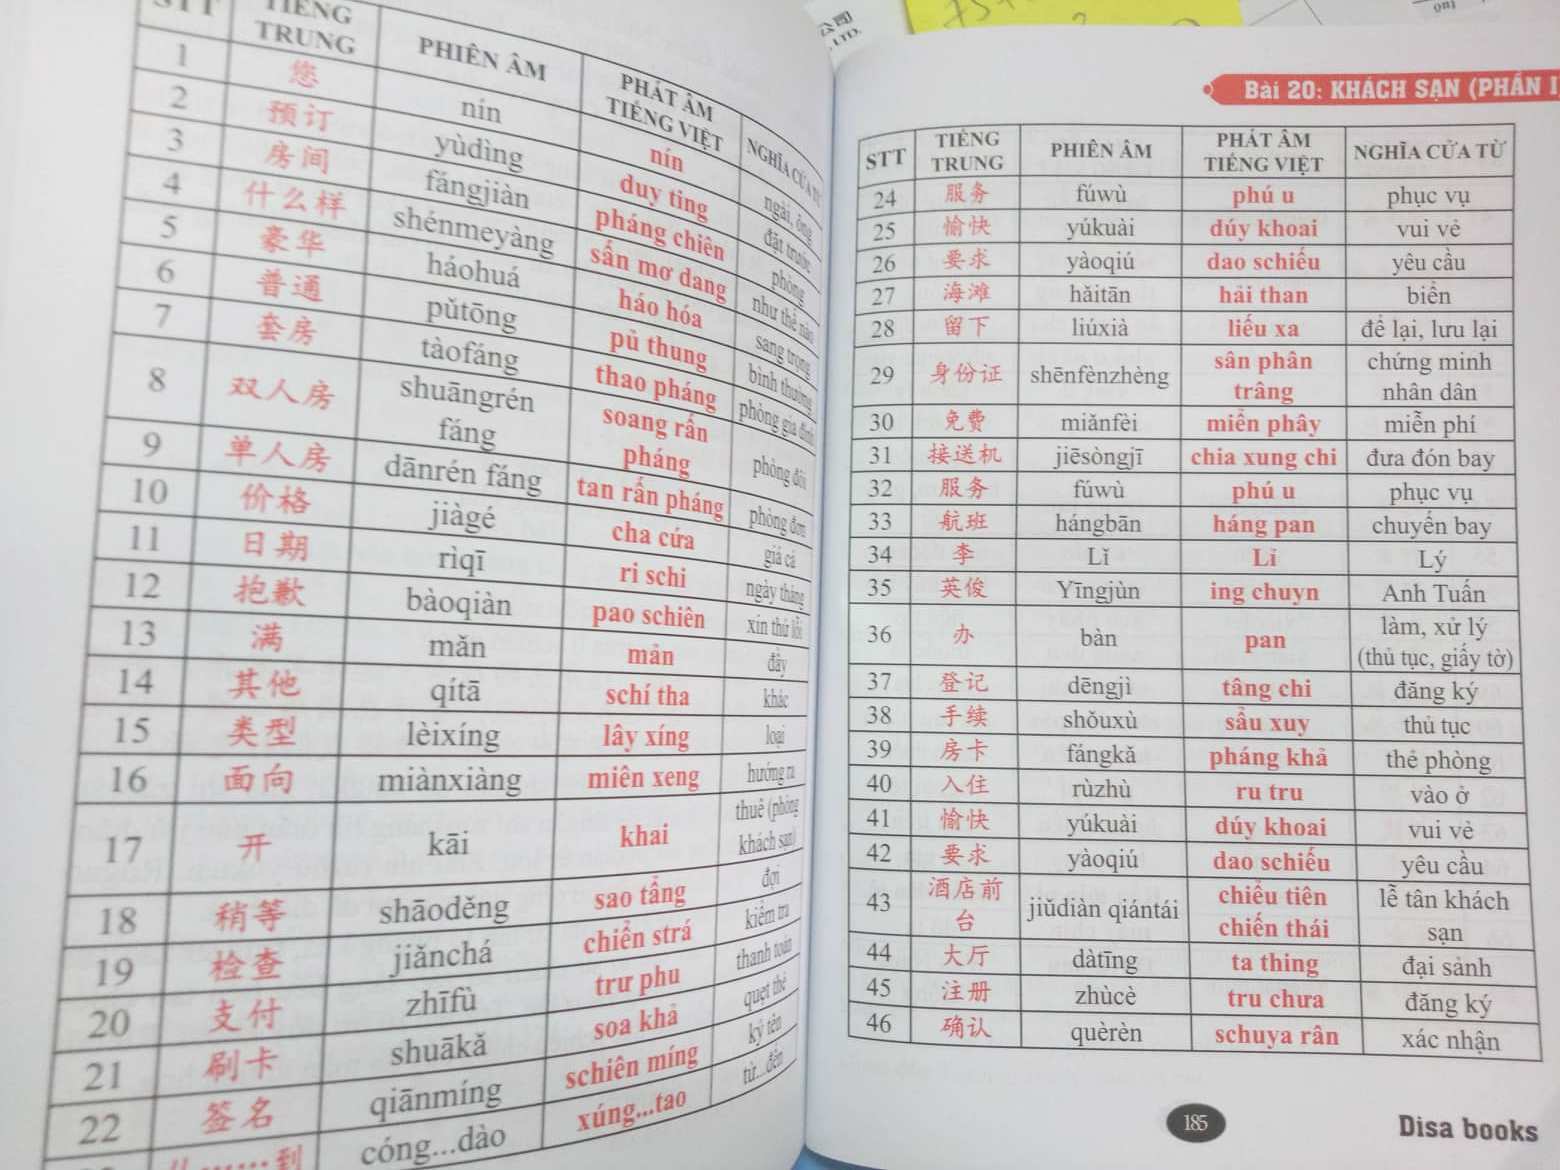 公司
, LTD.
STT TIẾNG TRUNG PHIÊN ÂM PHÁT ÂM TIẾNG VIỆT NGHĨA CỦA TỪ
1 您 nín nín ngài, ông
2 预订 yùdìng duy ting đặt trước
3 房间 fángjiàn pháng chiên phòng
4 什么样 shénmeyàng sấn mơ dang như thế nào
5 豪华 háohuá háo hóa sang trọng
6 普通 pǔtōng pủ thung bình thường
7 套房 tàofáng thao pháng phòng gia đình
8 双人房 shuāngrén fáng soang rấn pháng phòng đôi
9 单人房 dānrén fáng tan rấn pháng phòng đơn
10 价格 jiàgé cha cứa giá cả
11 日期 rìqī ri schi ngày tháng
12 抱歉 bàoqiàn pao schiên xin thứ lỗi
13 满 mǎn mản đầy
14 其他 qítā schí tha khác
15 类型 lèixíng lây xíng loại
16 面向 miànxiàng miên xeng hướng ra
17 开 kāi khai thuê (phòng khách sạn)
18 稍等 shāoděng sao tẩng đợi
19 检查 jiǎnchá chiển strá kiểm tra
20 支付 zhīfù trư phu thanh toán
21 刷卡 shuākǎ soa khả quẹt thẻ
22 签名 qiānmíng schiên míng ký tên
从……到 cóng...dào xúng...tao từ...đến
Bài 20: KHÁCH SẠN (PHẦN I
STT TIẾNG TRUNG PHIÊN ÂM PHÁT ÂM TIẾNG VIỆT NGHĨA CỦA TỪ
24 服务 fúwù phú u phục vụ
25 愉快 yúkuài dúy khoai vui vẻ
26 要求 yàoqiú dao schiếu yêu cầu
27 海滩 hǎitān hải than biển
28 留下 liúxià liếu xa để lại, lưu lại
29 身份证 shēnfènzhèng sân phân trâng chứng minh nhân dân
30 免费 miǎnfèi miển phây miễn phí
31 接送机 jiēsòngjī chia xung chi đưa đón bay
32 服务 fúwù phú u phục vụ
33 航班 hángbān háng pan chuyến bay
34 李 Lǐ Lỉ Lý
35 英俊 Yīngjùn ing chuyn Anh Tuấn
36 办 bàn pan làm, xử lý (thủ tục, giấy tờ)
37 登记 dēngjì tâng chi đăng ký
38 手续 shǒuxù sẩu xuy thủ tục
39 房卡 fángkǎ pháng khả thẻ phòng
40 入住 rùzhù ru tru vào ở
41 愉快 yúkuài dúy khoai vui vẻ
42 要求 yàoqiú dao schiếu yêu cầu
43 酒店前台 jiǔdiàn qiántái chiểu tiên chiến thái lễ tân khách sạn
44 大厅 dàtīng ta thing đại sảnh
45 注册 zhùcè tru chưa đăng ký
46 确认 quèrèn schuya rân xác nhận
185
Disa books